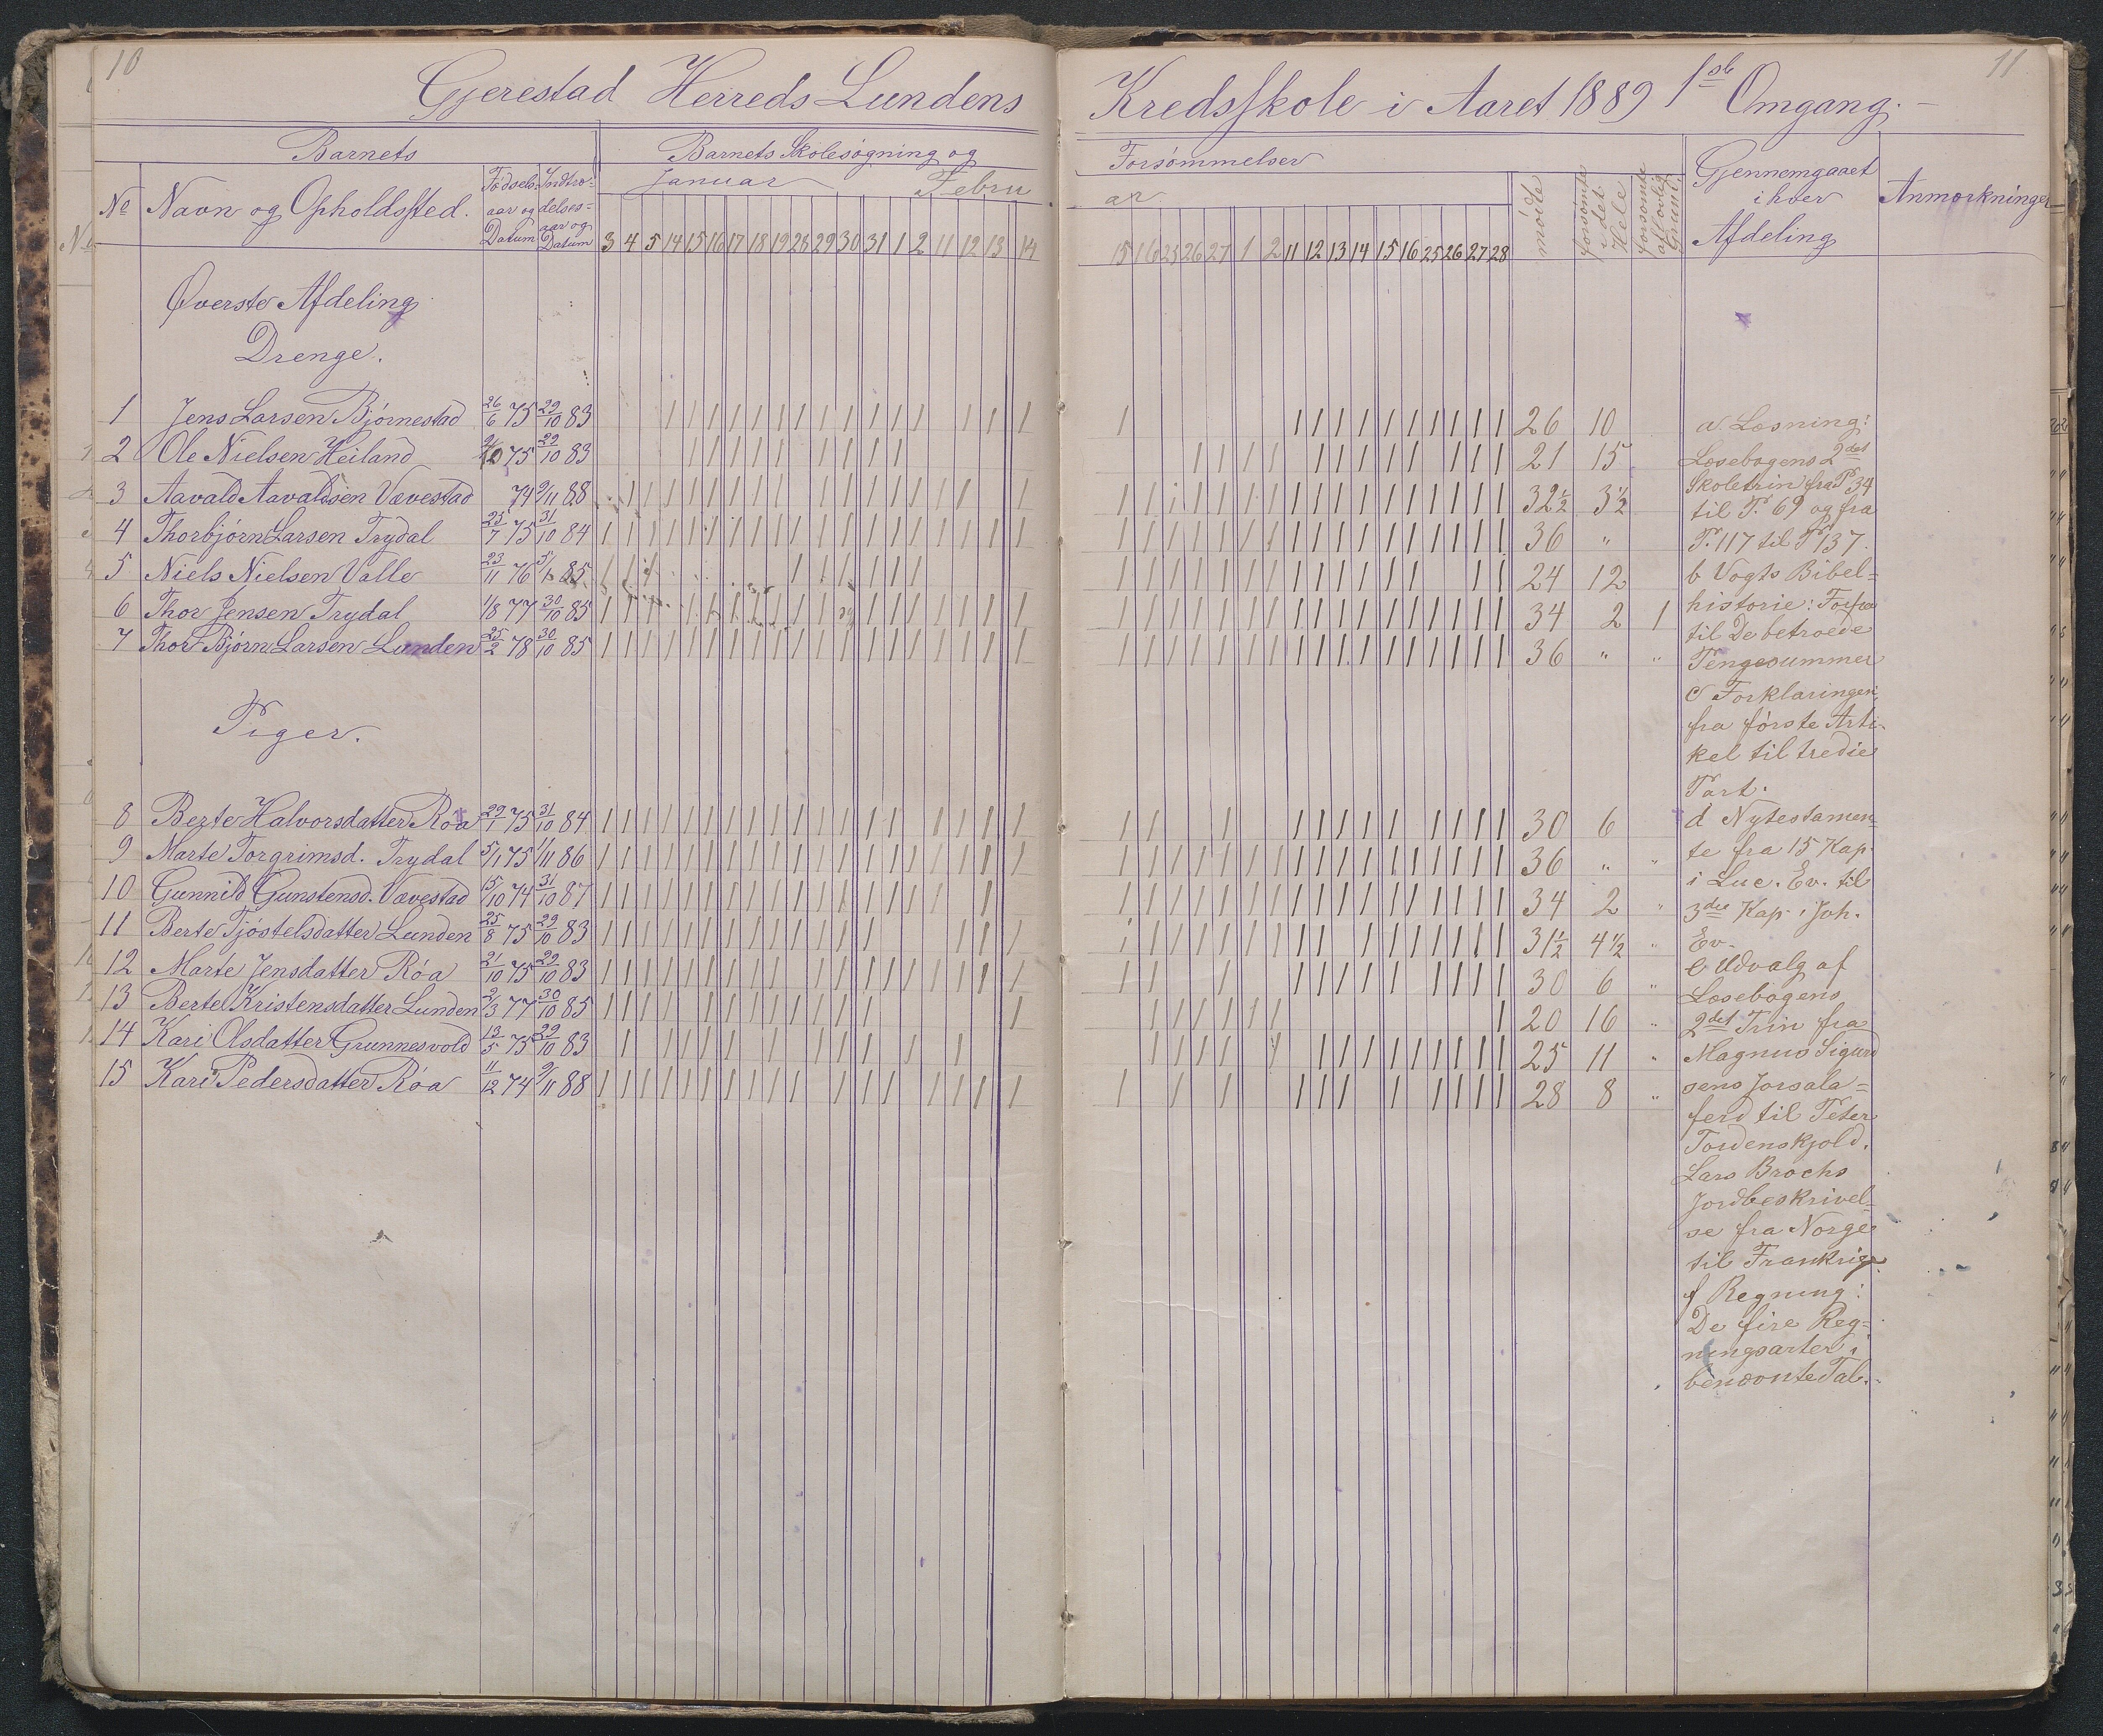 10
Gjerestad Herreds Lundens Kredsskole i Aaret 1889 1ste Omgang.
11
Barnets
Barnets Skolesøgning og Forsømmelser
No
Navn og Opholdssted.
Fødsels-
aar og
Datum
Indtræ-
delses-
aar og
Datum
Januar Februar
3 4 5 14 15 16 17 18 19 28 29 30 31 1 2 11 12 13 14
15 16 25 26 27 1 2 11 12 13 14 15 16 25 26 27 28
mødte
forsømte
i det
Hele
forsømte
af lovlig
Grund.
Gjennemgaaet
i hver
Afdeling
Anmærkninger
Øverste Afdeling
Drenge.
1 Jens Larsen Bjørnestad 26/6 75 29/10 83 26 10
2 Ole Nielsen Heiland 75 29/10 83 21 15
3 Aavald Aavaldsen Vævestad 74 9/11 88 32½ 3½
4 Thorbjørn Larsen Trydal 25/7 75 31/10 84 36 "
5 Niels Nielsen Valle 23/11 76 85 24 12
6 Thor Jensen Trydal 1/8 77 30/10 85 34 2 1
7 Thor Bjørn Larsen Lunden 25/2 78 30/10 85 36 " "
Piger.
8 Berte Halvorsdatter Røa 29/1 75 31/10 84 30 6
9 Marte Torgrimsd. Trydal 5/1 75 1/11 86 36 " "
10 Gunnild Gunstensd. Vævestad 15/10 74 31/10 87 34 2 "
11 Berte Tjøstelsdatter Lunden 25/8 75 29/10 83 31½ 4½ "
12 Marte Jensdatter Røa 21/10 75 29/10 83 30 6 "
13 Berte Kristensdatter Lunden 2/3 77 30/10 85 20 16 "
14 Kari Olsdatter Grunnesvold 13/5 75 29/10 83 25 11 "
15 Kari Pedersdatter Røa 11/12 74 9/11 88 28 8 "
a Læsning:
Læsebogens 2det
Skoletrin fra P. 34
til P. 69 og fra
P. 117 til P 137.
b Vogts Bibel=
historie: Forfra
til De betroede
Pengesummer
c Forklaringen,
fra første Arti-
kel til tredie
Part.
d Nytestamen-
te fra 15 Kap.
i Luc. Ev. til
3die Kap. i Joh.
Ev.
e Udvalg af
Læsebogens
2det Trin fra
Magnus Sigurd
sens Jorsala=
ferd til Peter
Tordenskjold.
Lars Brochs
Jordbeskrivel-
se fra Norge
til Frankrig.
f Regning:
De fire Reg=
ningsarter i
benævnte Tal.